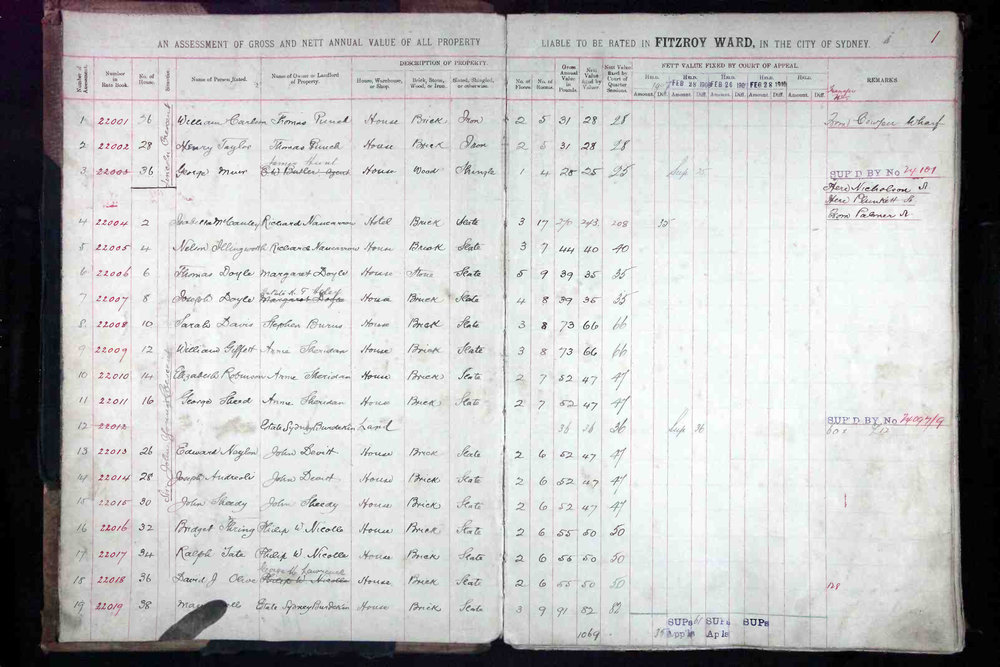 AN ASSESSMENT OF GROSS AND NETT ANNUAL VALUE OF ALL PROPERTY LIABLE TO BE RATED IN FITZROY WARD, IN THE CITY OF SYDNEY. 1
DESCRIPTION OF PROPERTY. NETT VALUE FIXED BY COURT OF APPEAL.
Number of Assessment. Number in Rate Book. No. of House. Situation Name of Person Rated. Name of Owner or Landlord of Property. House, Warehouse, or Shop. Brick, Stone, Wood, or Iron. Slated, Shingled, or otherwise. No. of Floors. No. of Rooms. Gross Annual Value in Pounds. Nett Value fixed by Valuer. Nett Value fixed by Court of Quarter Sessions. HELD. HELD. HELD. HELD. HELD. REMARKS.
FEB 28 FEB 26 FEB 28
Amount. Diff. Amount. Diff. Amount. Diff. Amount. Diff. Amount. Diff.
1 22001 36 William Carlson Thomas Punch House Brick Iron 2 5 31 28 28 From Cowper Wharf
2 22002 28 Henry Taylor Thomas Punch House Brick Iron 2 5 31 28 28
James Hunt
3 22003 36 George Muir Butler agent House Wood Shingle 1 4 28 25 25 Sup 25 SUP'D BY No 24181
Here Nicholson St
Here Plunkett St
From Palmer St
4 22004 2 McCauley Richard Nancarrow Hotel Brick Slate 3 17 270 243 208 35
5 22005 4 Nelson Illingworth Richard Nancarrow House Brick Slate 3 7 44 40 40
6 22006 6 Thomas Doyle Margaret Doyle House Stone Slate 5 9 39 35 35
7 22007 8 Joseph Doyle Margaret Doyle House Brick Slate 4 8 39 35 35
8 22008 10 Sarah Davis Stephen Burns House Brick Slate 3 8 73 66 66
9 22009 12 William Giffett Annie Sheridan House Brick Slate 3 8 73 66 66
10 22010 14 Elizabeth Robinson Annie Sheridan House Brick Slate 2 7 52 47 47
11 22011 16 George Sherd Annie Sheridan House Brick Slate 2 7 52 47 47
12 22012 Estate Sydney Burdekin Land 36 36 36 Sup 36 SUP'D BY No
13 22013 26 Edward Naylor John Devitt House Brick Slate 2 6 52 47 47
14 22014 28 Joseph Andreoli John Devitt House Brick Slate 2 6 52 47 47
15 22015 30 John Sheedy John Sheedy House Brick Slate 2 6 52 47 47
16 22016 32 Bridget Thring Philip W Nicolle House Brick Slate 2 6 55 50 50
17 22017 34 Ralph Tate Philip W Nicolle House Brick Slate 2 6 55 50 50
George H Lawrence
18 22018 36 David J Olive Philip W Nicolle House Brick Slate 2 6 55 50 50 128
19 22019 38 Estate Sydney Burdekin House Brick Slate 3 9 91 82 82
1069 35 SUPs 61 SUPs SUPs
Appls Apls